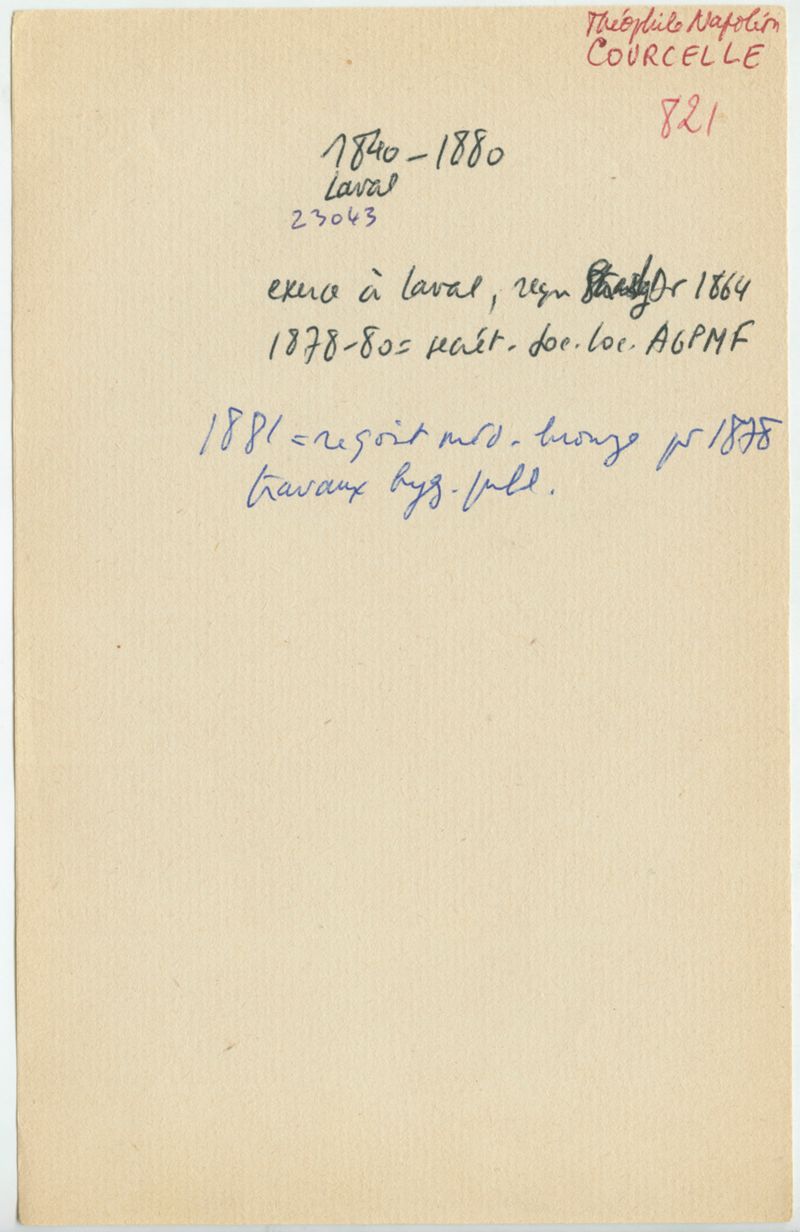 Théophile Napoléon
COURCELLE
821
1840-1880
Laval
23043
exerce à Laval, reçu Dr 1864
1878-80= secrét. soc. loc. AGPMF
1881 = reçoit méd. bronze pr 1878
travaux hyg. publ.